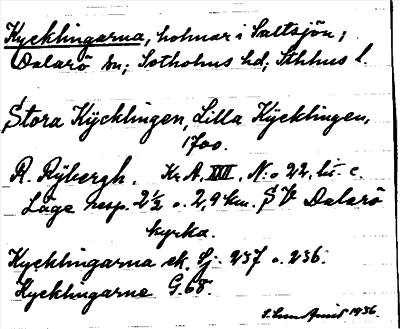 Kycklingarna, holmar i Saltsjön;
Dalarö sn; Sotholms hd; Sthlms l.
Stora Kÿcklingen, Lilla Kÿcklingen,
1700.
R. Rÿbergh. Kr A. XXII. N. o 22. lit. c.
Läge resp. 2½ o. 2,9 km. SV Dalarö
kyrka.
Kycklingarna ek. Sj. 237 o. 236.
Kycklingarne G. 68.
1936.